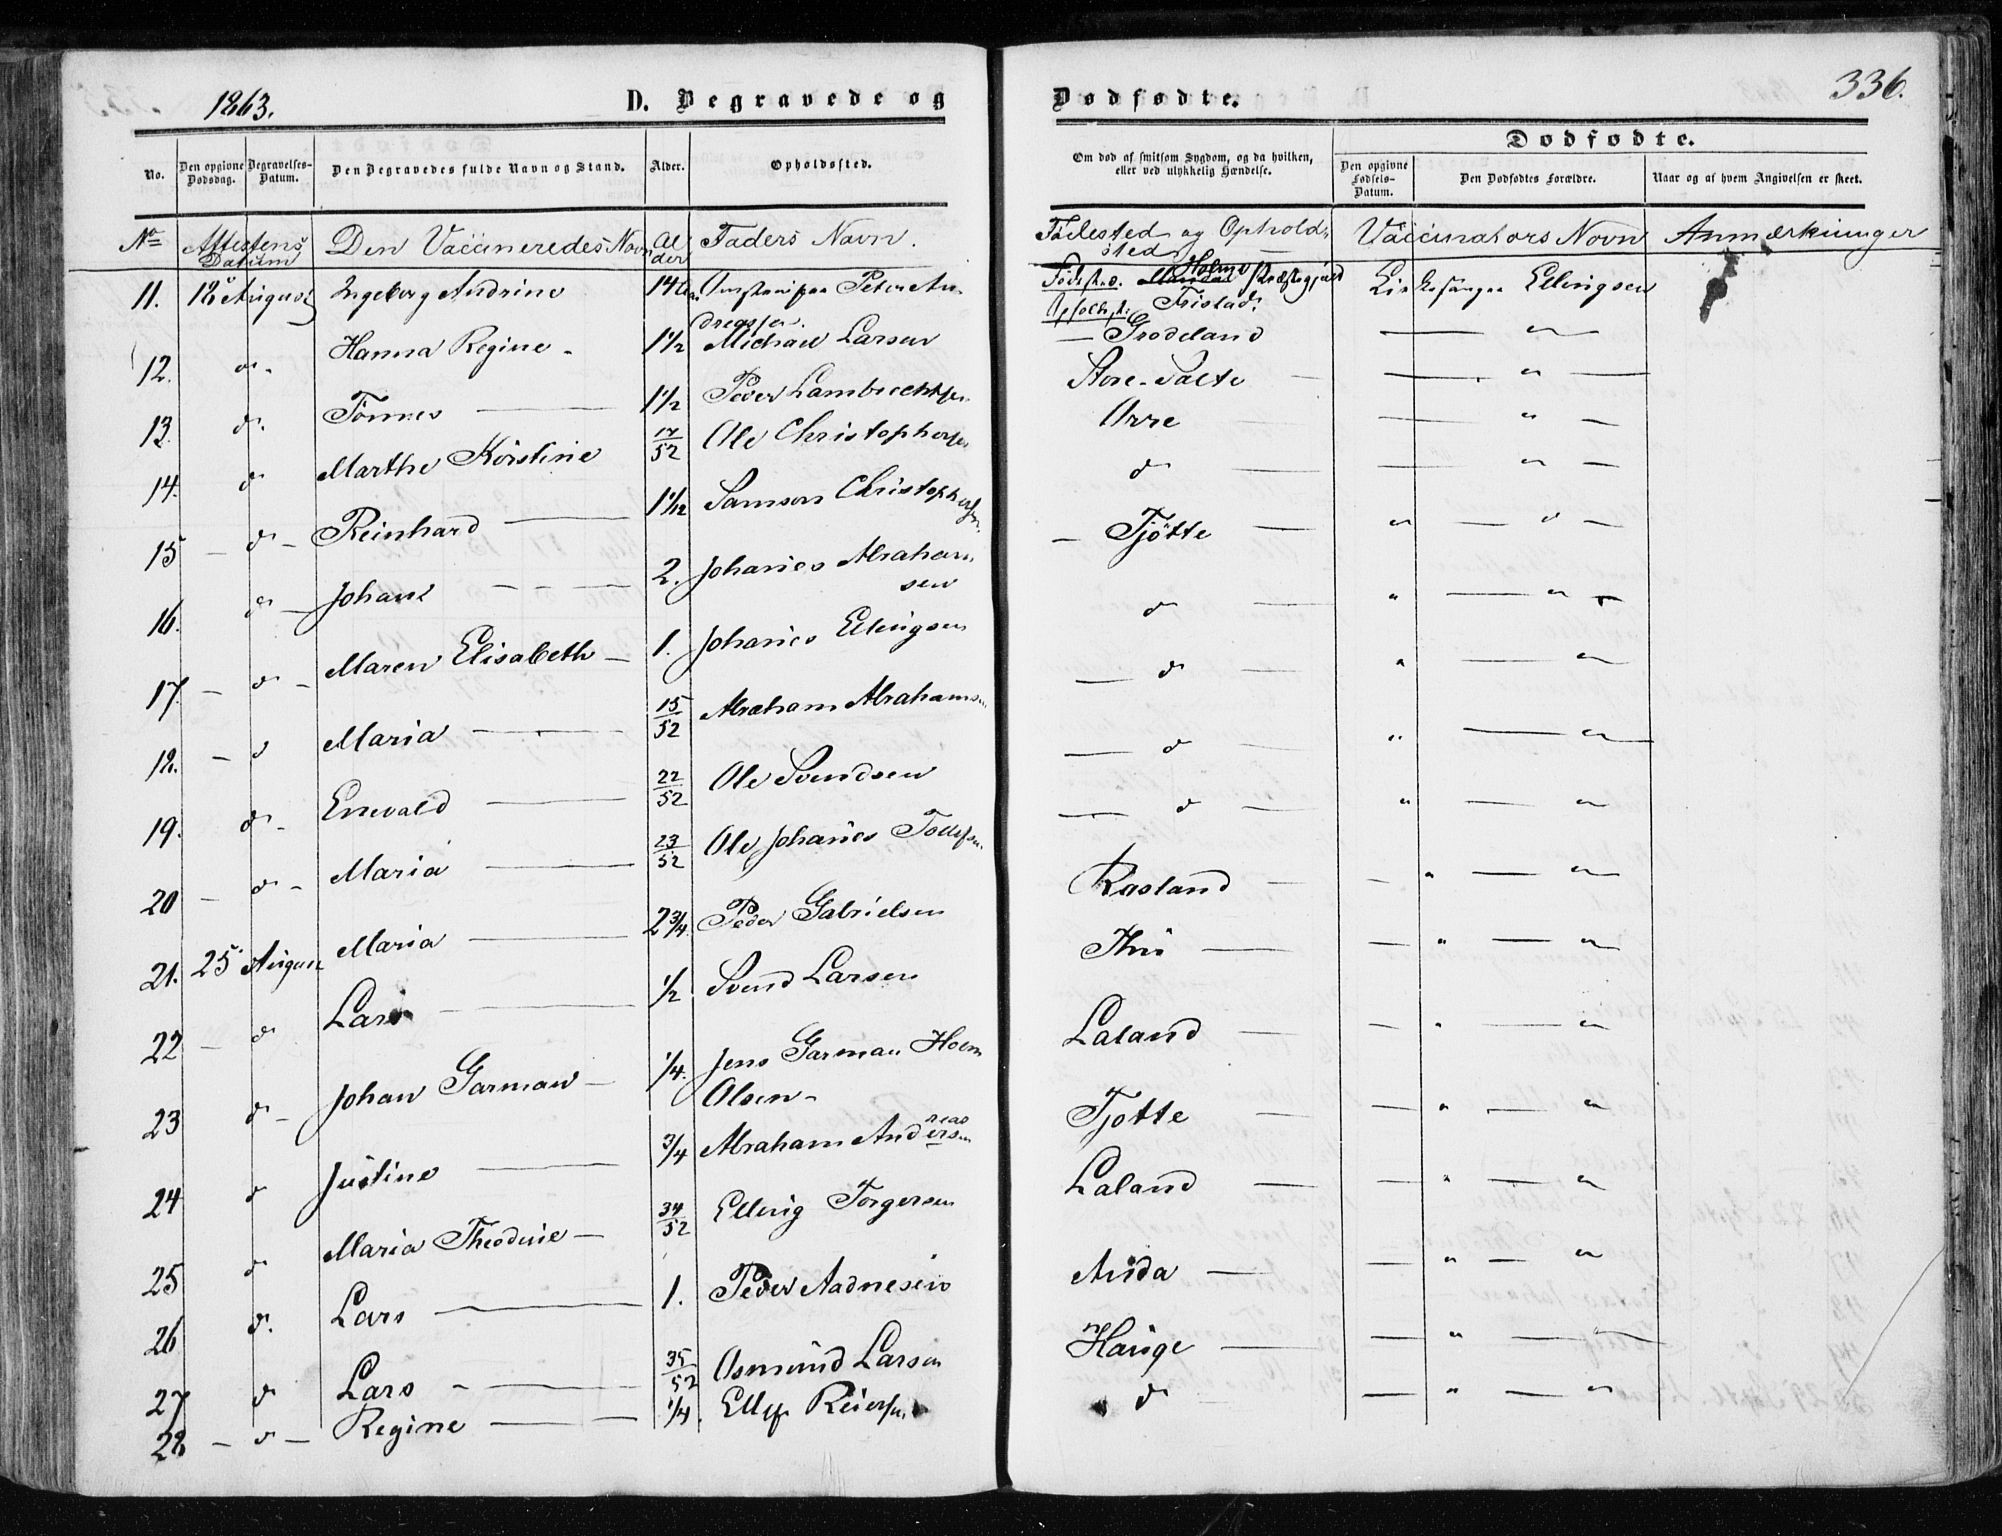 1863.
D. Begravede og
Dødfødte.
336.
No.
Den opgivne Dødsdag.
Begravelses-Datum.
Den Begravedes fulde Navn og Stand.
Alder.
Opholdssted.
Om død af smitsom Sygdom, og da hvilken, eller ved ulykkelig Hændelse.
Dødfødte.
Den opgivne Fødsels-Datum.
Den Dødfødtes Forældre.
Naar og af hvem Angivelsen er skeet.
No Attestens Datum Den Vaccineredes Navn Alder Faders Navn. Fødested og Opholdssted Vaccinators Navn Anmærkninger
11. 18 August Ingeborg Andrine 14 Peter Andreassen. Holme Præstegjeld Kirkesanger Ellingsen
12. d. Hanna Regine - 1 1/2 Michael Larsen — Grodeland — " —
13. d. Tønnes — 1 1/2 Peder Lambrechtsen Store-Salte — — " —
14. d Marthe Kirstine 17/52 Ole Christophersen Orre — " —
15 — d — Reinhard — 1 1/12 Samson Christophersen. d — — " —
16. d — Johan — 2. Johanes Abrahamsen — Tjøtte — " — " —
17. — d — Maren Elisabeth — 1. Johanes Ellingsen d — " — "
18. — d Maria — 15/52 Abraham Abrahamsen — d — " — "
19. d — Enevald — 22/52 Ole Svendsen — d — " — "
20 — d — Maria — 23/52 Ole Johanes Tollefsen — d — " — "
21. 25 August Maria — 2 3/4 Peder Gabrielsen Rasland — — " — "
22 — d Lars — 1/2 Svend Larsen Thu — — " — "
23 d — Johan Garman — 1/4. Jens Garman Holm Olsen - Laland — — " — "
24 d Justine — 3/4 Abraham Andreassen Tjøtte — — " — "
25 d Maria Theodine — 34/52 Elling Torgersen Laland — — " — "
26 d. Lars — 1. Peder Aadnesen Anda — — " — "
27 d Lars — 35/52 Osmund Larsen Hauge — — " — "
28 — d — Regine — 1/4. Ellef Reiersen d — — " — "